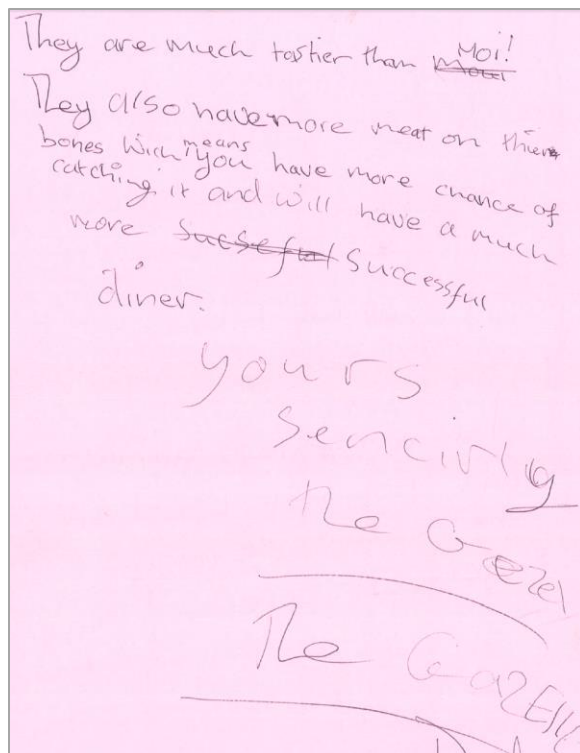 They are much tastier than Moi!
They also have more meat on thier
bones wich means you have more chance of
catching it and will have a much
more Sucsesful Successful
diner.
yours
sencirly
the Gazel
The